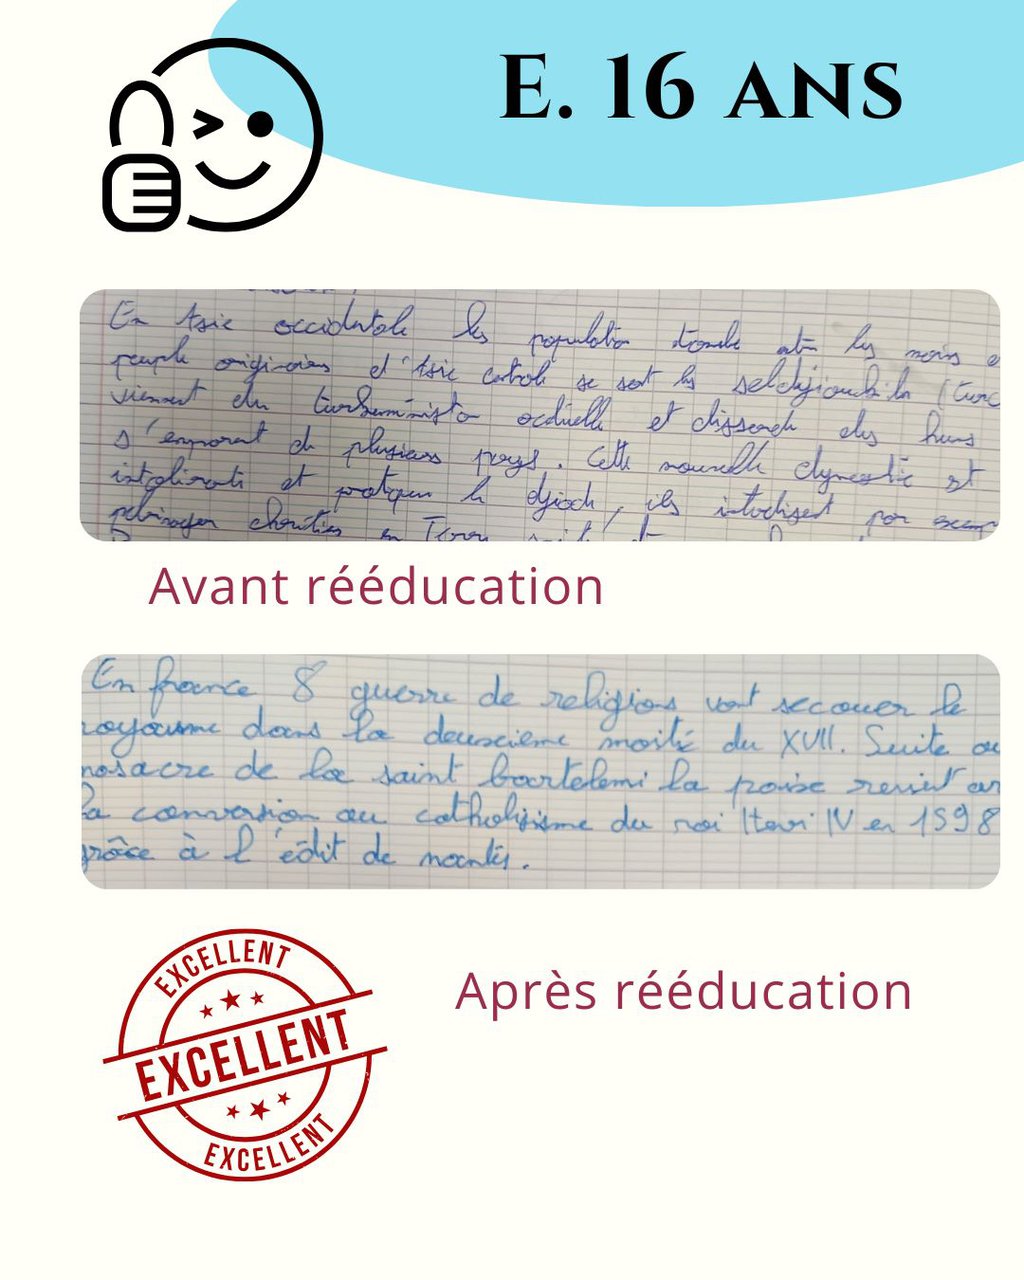 E. 16 ANS
En Asie occidentale les population tombe les moins
peuple originaires d'Asie centrale se sont les seldjioukides (turc
viennent du turkmenista actuelle et dissende des huns
s'emparent de plusieurs pays. Cette nouvelle dynastie est
et pratiquen le djiad, ils interdisent par
chrétien en Terre
Avant rééducation
En france 8 guerre de religions vont secouer le
royaume dans la deuxcieme moitié du XVII. Suite au
masacre de la saint bartelemi la paix revient
la conversion au catholisisme du roi Henri IV en 1598
grâce à l'édit de nantes.
EXCELLENT
EXCELLENT
EXCELLENT
Après rééducation